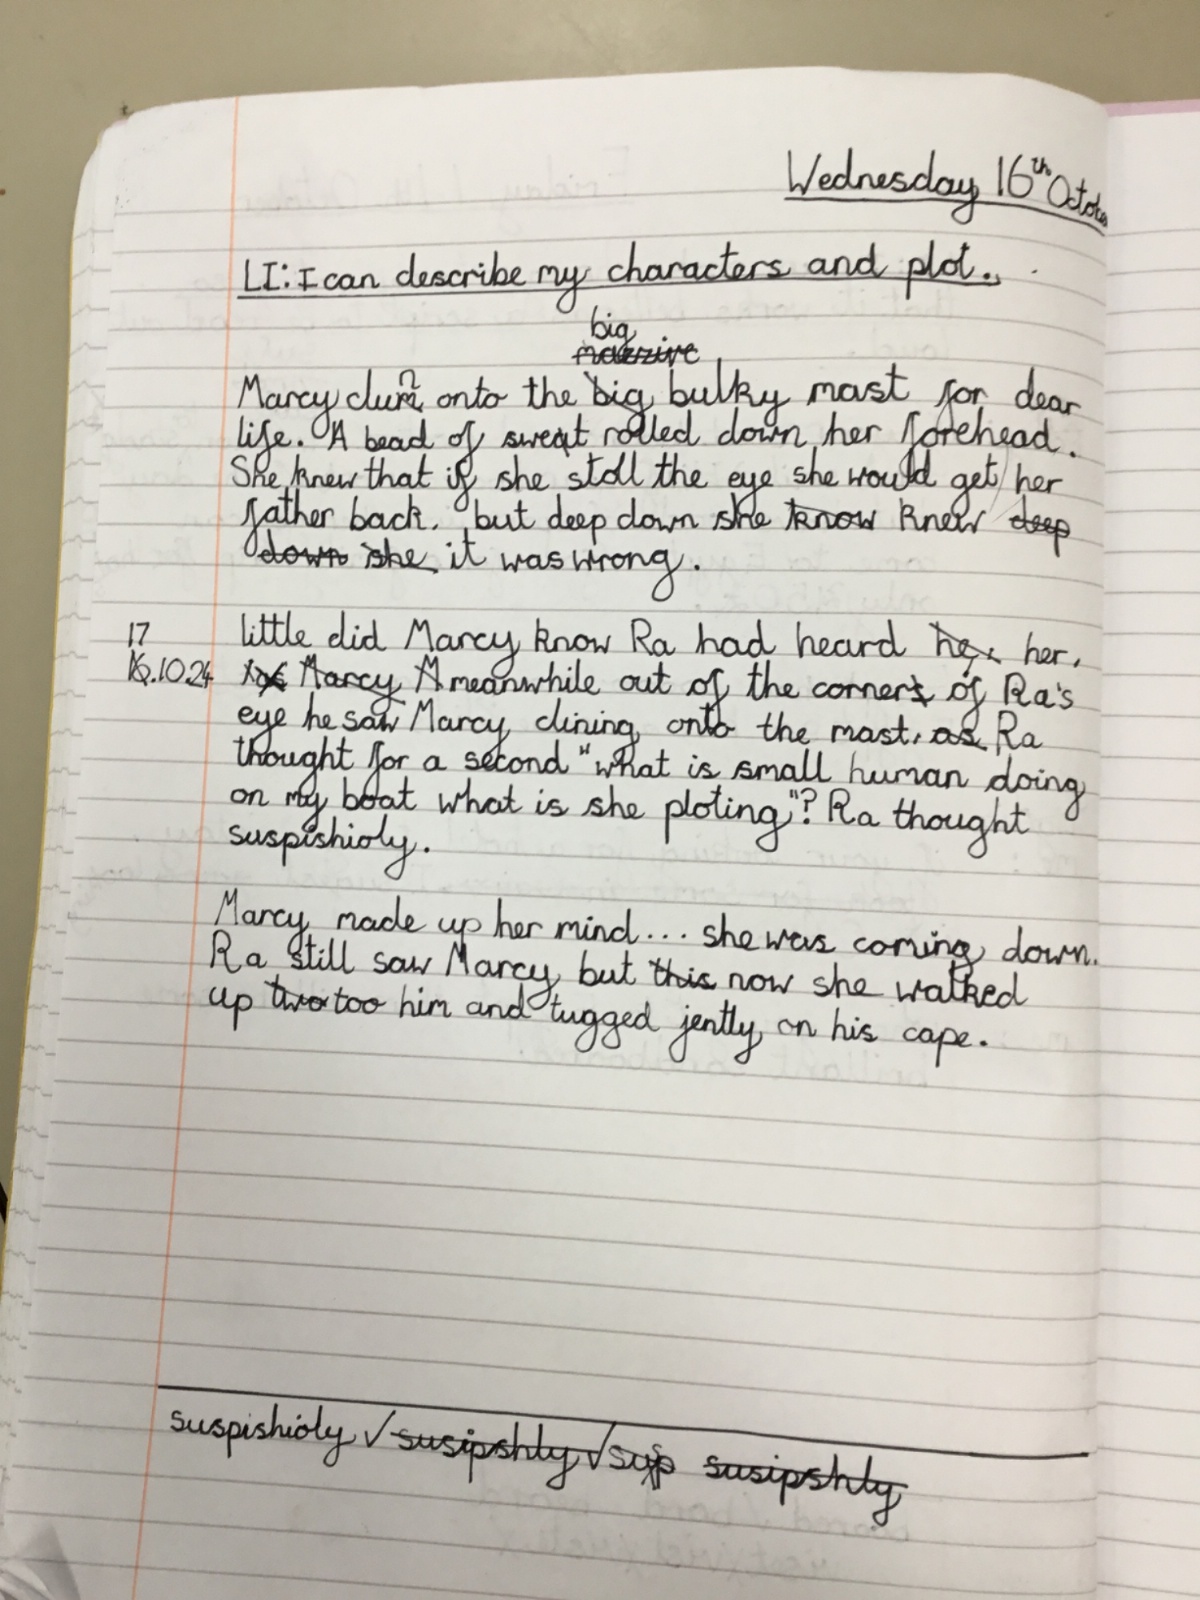 Wednesday 16th October
LI: I can describe my characters and plot.
big
massive
Marcy clun onto the big bulky mast for dear
life. A bead of sweat rolled down her forehead.
She knew that if she stoll the eye she would get her
father back. but deep down she know knew deep
down she it was wrong.
little did Marcy know Ra had heard her,
17
16.10.24 Marcy meanwhile out of the corner of Ra's
eye he saw Marcy clining onto the mast, as Ra
thought for a second "what is small human doing
on my boat what is she ploting"? Ra thought
suspishioly.
Marcy made up her mind... she was coming down.
Ra still saw Marcy but this now she walked
up two too him and tugged jently on his cape.
suspishioly √ susipshly √ susp susipshly